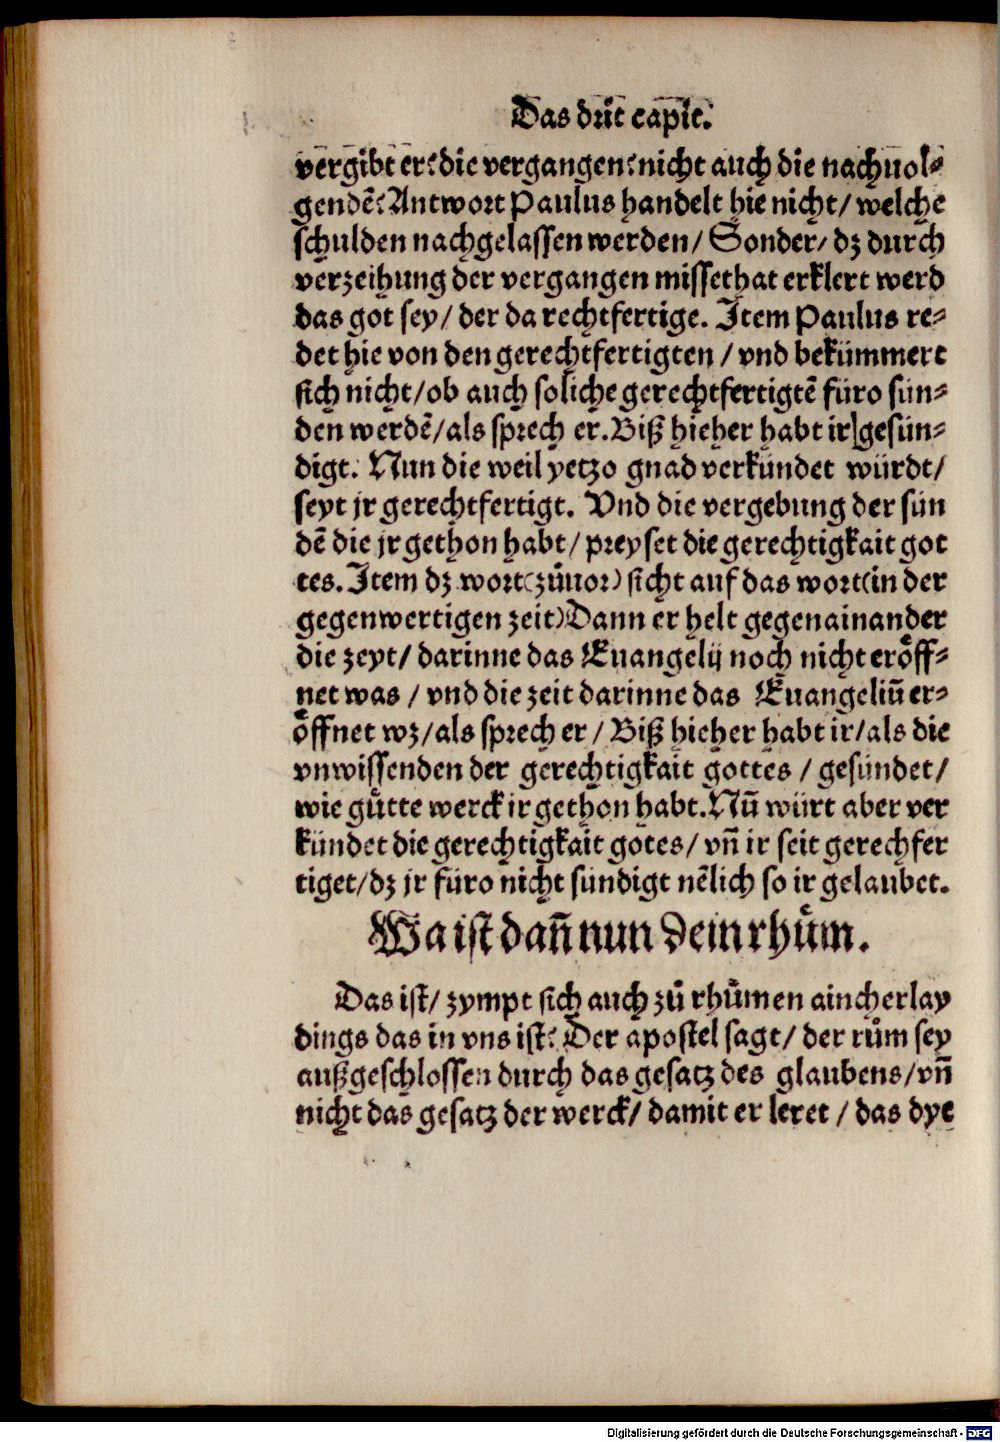 Das drit capit.
vergibt er? die vergangen? nicht auch die nachuol⸗
gendē? Antwort Paulus handelt hie nicht / welche
schulden nachgelassen werden / Sonder / dz durch
verzeihung der vergangen missethat erklert werd
das got sey / der da rechtfertige. Item Paulus re⸗
det hie von den gerechtfertigten / vnd bekümmert
sich nicht / ob auch soliche gerechtfertigtē füro sün⸗
den werdē / als sprech er. Biß hieher habt ir gesün⸗
digt. Nun die weil yetzo gnad verkündet würdt /
seyt jr gerechtfertigt. Vnd die vergebung der sün
dē die jr gethon habt / preyset die gerechtigkait got
tes. Item dz wort (zůuor) sicht auf das wort (in der
gegenwertigen zeit) Dann er helt gegenainander
die zeyt / darinne das Euangelij noch nicht eröff⸗
net was / vnd die zeit darinne das Euangeliū er⸗
öffnet wz / als sprech er / Biß hieher habt ir / als die
vnwissenden der gerechtigkait gottes / gesündet /
wie gůtte werck ir gethon habt. Nū würt aber ver
kündet die gerechtigkait gotes / vñ ir seit gerechfer
tiget / dz jr füro nicht sündigt nēlich so ir gelaubet.
Wa ist dañ nun dein rhům.
Das ist / zympt sich auch zů rhůmen aincherlay
dings das in vns ist? Der apostel sagt / der rům sey
außgeschlossen durch das gesatz des glaubens / vñ
nicht das gesatz der werck / damit er leret / das dye
Digitalisierung gefördert durch die Deutsche Forschungsgemeinschaft - DFG